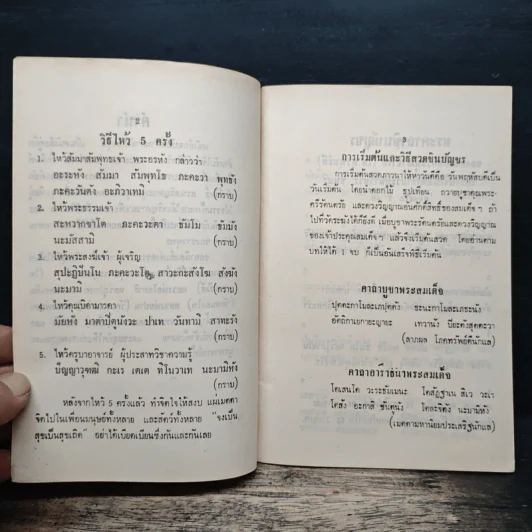 วิธีไหว้ 5 ครั้ง
1. ไหว้สัมมาสัมพุทธเจ้า พระอรหัง กล่าวว่า
อะระหัง สัมมา สัมพุทโธ ภะคะวา พุทธัง
ภะคะวันตัง อะภิวาเทมิ (กราบ)
2. ไหว้พระธรรมเจ้า
สะหวากขาโต ภะคะวะตา ธัมโม ธัมมัง
นะมัสสามิ (กราบ)
3. ไหว้พระสงฆ์เจ้า ผู้เจริญ
สุปะฏิปันโน ภะคะวะโต สาวะกะสังโฆ สังฆัง
นะมามิ (กราบ)
4. ไหว้คุณบิดามารดา
มัยหัง มาตาปิตุนังวะ ปาเท วันทามิ สาทะรัง
(กราบ)
5. ไหว้ครูบาอาจารย์ ผู้ประสาทวิชาความรู้
ปัญญาวุฒฒิ กะเร เตเต ทินโนวาเท นะมามิหัง
(กราบ)
หลังจากไหว้ 5 ครั้งแล้ว ทำจิตใจให้สงบ แผ่เมตตา
จิตไปในเพื่อนมนุษย์ทั้งหลาย และสัตว์ทั้งหลาย "จงเป็น
สุขเป็นสุขเถิด" อย่าได้เบียดเบียนซึ่งกันและกันเลย
การเริ่มต้นและวิธีสวดชินบัญชร
การเริ่มต้นสวดภาวนาให้หาวันดีคือ วันพฤหัสบดีเป็น
วันเริ่มต้น โดยน้อมดอกไม้ ธูปเทียน ถวายบูชาคุณพระ
ศรีรัตนตรัย และดวงวิญญาณอันศักดิ์สิทธิ์ของสมเด็จฯ ถ้า
ไปที่วัดระฆังได้ก็ยิ่งดี เมื่อบูชาพระรัตนตรัยและดวงวิญญาณ
ของเจ้าประคุณสมเด็จฯ แล้วจึงเริ่มต้นสวด โดยอ่านตาม
บทให้ได้ 1 จบ ก็เป็นอันเสร็จพิธีเริ่มต้น
คาถาบูชาพระสมเด็จ
ปุตตะกาโมละเภปุตตัง ธะนะกาโมละเภธะนัง
อัตถิกาเยกายะญายะ เทวานัง ปิยะตังสุตตะวา
(ลาภผล โภคทรัพย์ดีนักแล)
คาถาอาราธนาพระสมเด็จ
โตเสนโต วะระธัมเมนะ โตสัฏฐาเน สิเว วะเร
โตสัง อะกาสิ ชันตูนัง โตละจิตตัง นะมามิหัง
(เมตตามหานิยมประเสริฐนักแล)